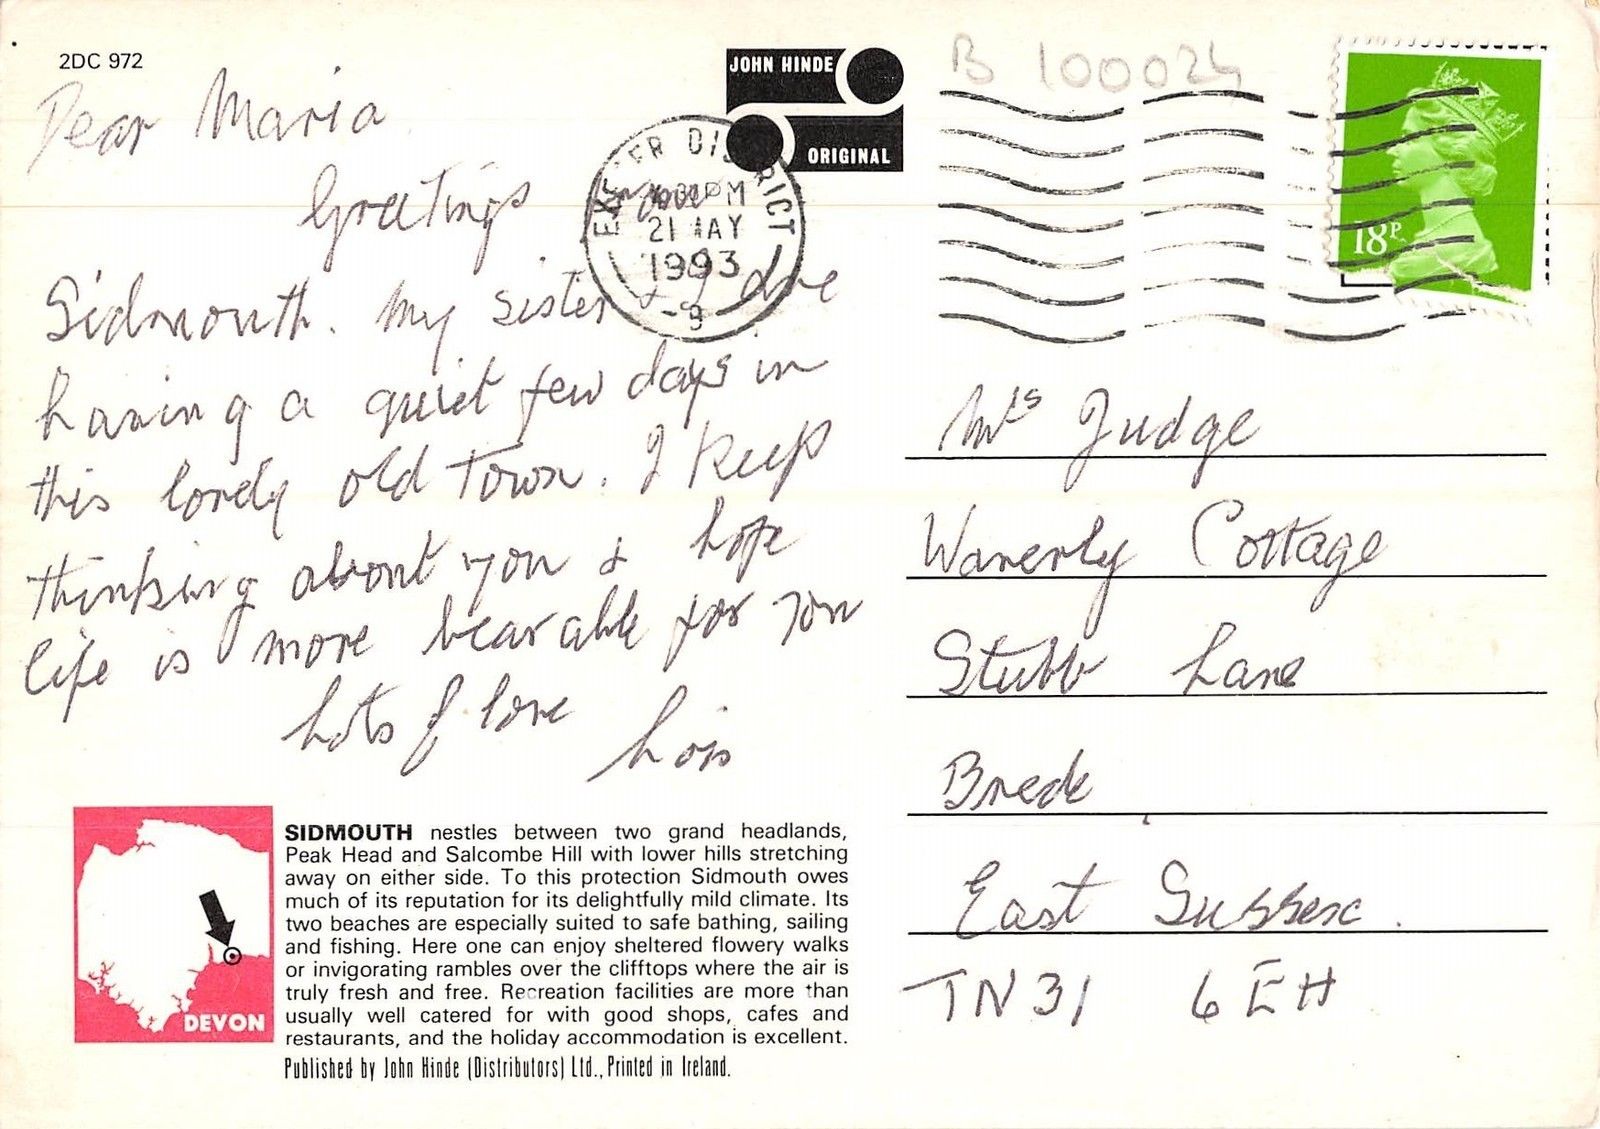 2DC 972
JOHN HINDE
ORIGINAL
B 100024
EXETER DISTRICT
PM
21 MAY
1993
- 9
18P
Dear Maria
Greetings from
Sidmouth. My sister & I are
having a quiet few days in
this lovely old town. I keep
thinking about you & hope
life is more bearable for you
Lots of love
Lois
Mrs Judge
Waverly Cottage
Stubb Lane
Brede
East Sussex.
TN31 6EH
DEVON
SIDMOUTH nestles between two grand headlands,
Peak Head and Salcombe Hill with lower hills stretching
away on either side. To this protection Sidmouth owes
much of its reputation for its delightfully mild climate. Its
two beaches are especially suited to safe bathing, sailing
and fishing. Here one can enjoy sheltered flowery walks
or invigorating rambles over the clifftops where the air is
truly fresh and free. Recreation facilities are more than
usually well catered for with good shops, cafes and
restaurants, and the holiday accommodation is excellent.
Published by John Hinde (Distributors) Ltd., Printed in Ireland.